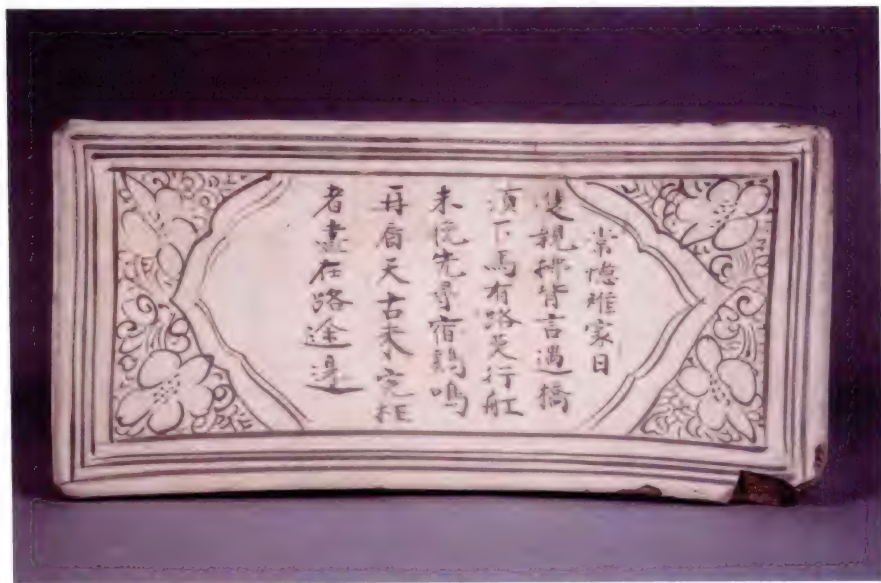 常憶離家日
雙親拊背言遇橋
須下馬有路莫行舡
未晚先尋宿鷄鳴
再看天古来冤枉
者盡在路途邊